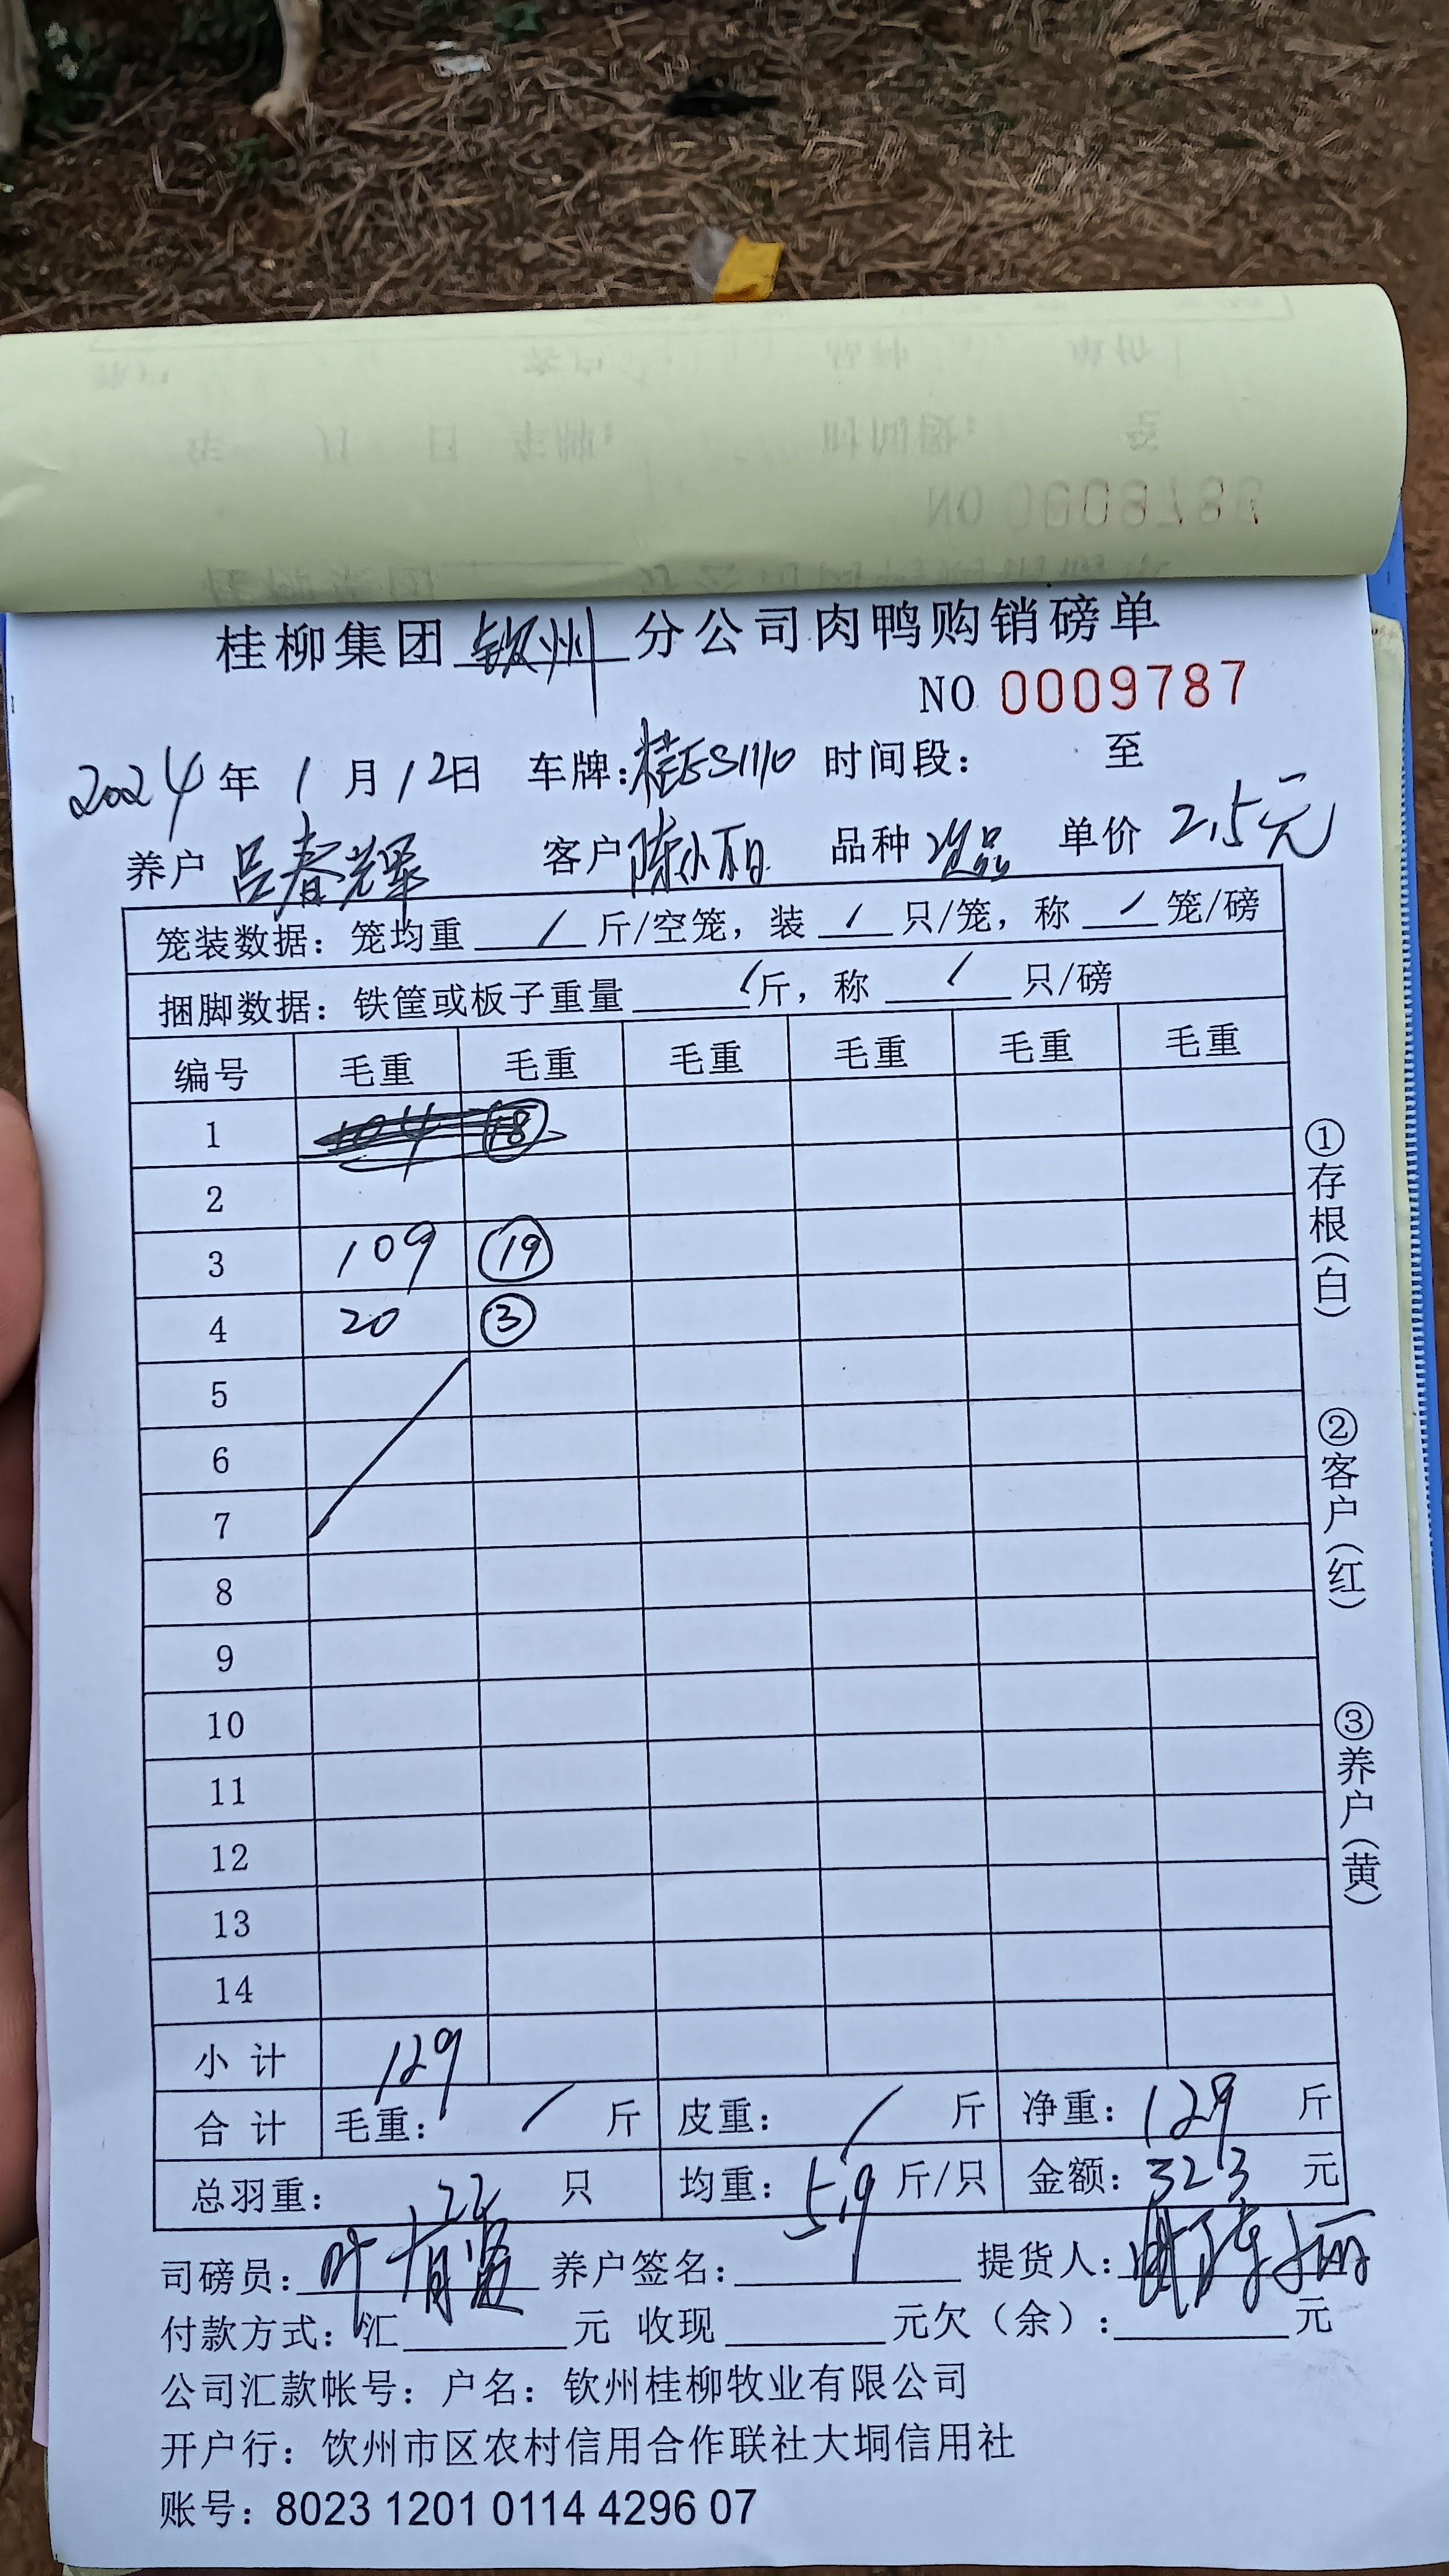 桂柳集团 钦州 分公司肉鸭购销磅单
NO 0009787
2024 年 1 月 12 日 车牌: 时间段: 至
养户 吕春辉 客户 品种 次品 单价 2.5元
笼装数据: 笼均重 / 斤/空笼, 装 / 只/笼, 称 / 笼/磅
捆脚数据: 铁筐或板子重量 / 斤, 称 / 只/磅
编号 毛重 毛重 毛重 毛重 毛重 毛重
1
2
3 109 ⑲
4 20 ③
5
6
7
8
9
10
11
12
13
14
小计 129
合计 毛重: / 斤 皮重: / 斤 净重: 129 斤
总羽重: 22 只 均重: 5.9 斤/只 金额: 323 元
司磅员: 养户签名: 提货人:
付款方式: 汇 元 收现 元欠(余): 元
公司汇款帐号: 户名: 钦州桂柳牧业有限公司
开户行: 饮州市区农村信用合作联社大垌信用社
账号: 8023 1201 0114 4296 07
①存根(白)
②客户(红)
③养户(黄)